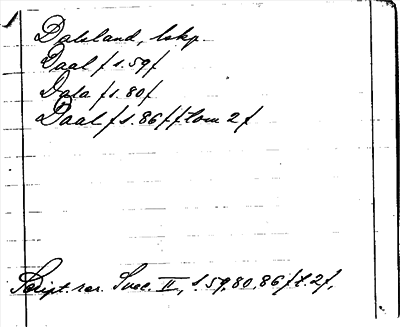 Dalsland, lskp
Daal /s. 59/
Dala /s. 80/
Daal /s. 86/ /tom 2/
Script. rer. Svec. II, s 59, 80, 86 /t. 2/.